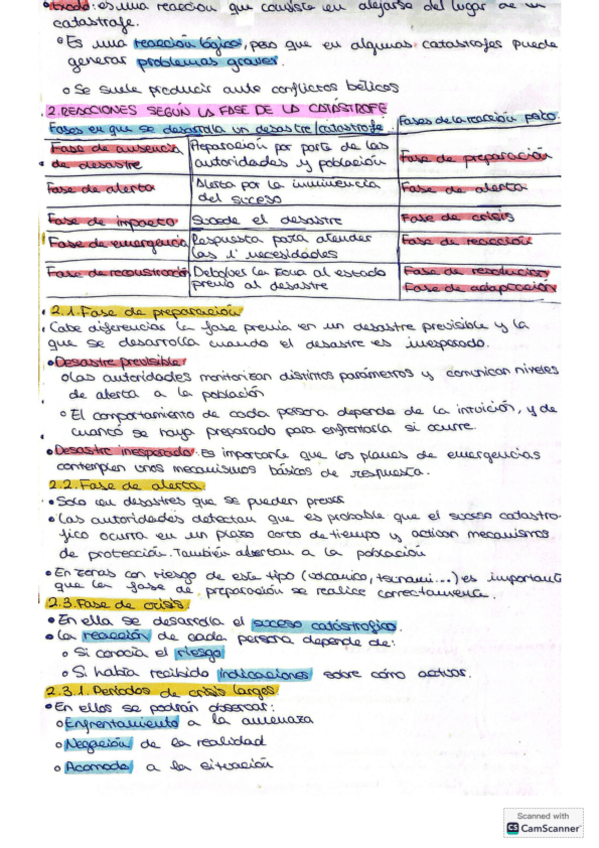 • Éxodo: es una reacción que consiste en alejarse del lugar de un
catástrofe.
o Es una reacción lógica, pero que en algunas catástrofes puede
generar problemas graves.
o Se suele producir ante conflictos bélicos
2. REACCIONES SEGÚN LA FASE DE LA CATÁSTROFE
Fases en que se desarrolla un desastre/catástrofe. Fases de la reacción psico.
Fase de ausencia de desastre Preparación por parte de las autoridades y población Fase de preparación
Fase de alerta Alerta por la inminencia del suceso Fase de alerta
Fase de impacto Sucede el desastre Fase de crisis
Fase de emergencia Respuesta para atender las 1ª necesidades Fase de reacción
Fase de reconstrucción Devolver la zona al estado previo al desastre Fase de resolución Fase de adaptación
2.1. Fase de preparación
• Cabe diferenciar la fase previa en un desastre previsible y la
que se desarrolla cuando el desastre es inesperado.
• Desastre previsible:
o las autoridades monitorizan distintos parámetros y comunican niveles
de alerta a la población
o El comportamiento de cada persona depende de la intuición, y de
cuanto se haya preparado para enfrentarla si ocurre.
• Desastre inesperado. Es importante que los planes de emergencias
contemplen unos mecanismos básicos de respuesta.
2.2. Fase de alerta
• Solo en desastres que se pueden prever
• Las autoridades detectan que es probable que el suceso catastro-
fico ocurra en un plazo corto de tiempo y activan mecanismos
de protección. También alertan a la población
• En zonas con riesgo de este tipo (volcanico, tsunami...) es important
que la fase de preparación se realice correctamente.
2.3. Fase de crisis
• En ella se desarrolla el suceso catástrofico.
• La reacción de cada persona depende de:
o Si conocía el riesgo
o Si había recibido indicaciones sobre cómo actuar.
2.3.1. Periodos de crisis largos
• En ellos se podrán observar:
o Enfrentamiento a la amenaza
o Negación de la realidad
o Acomodo a la situación
Scanned with
CS CamScanner